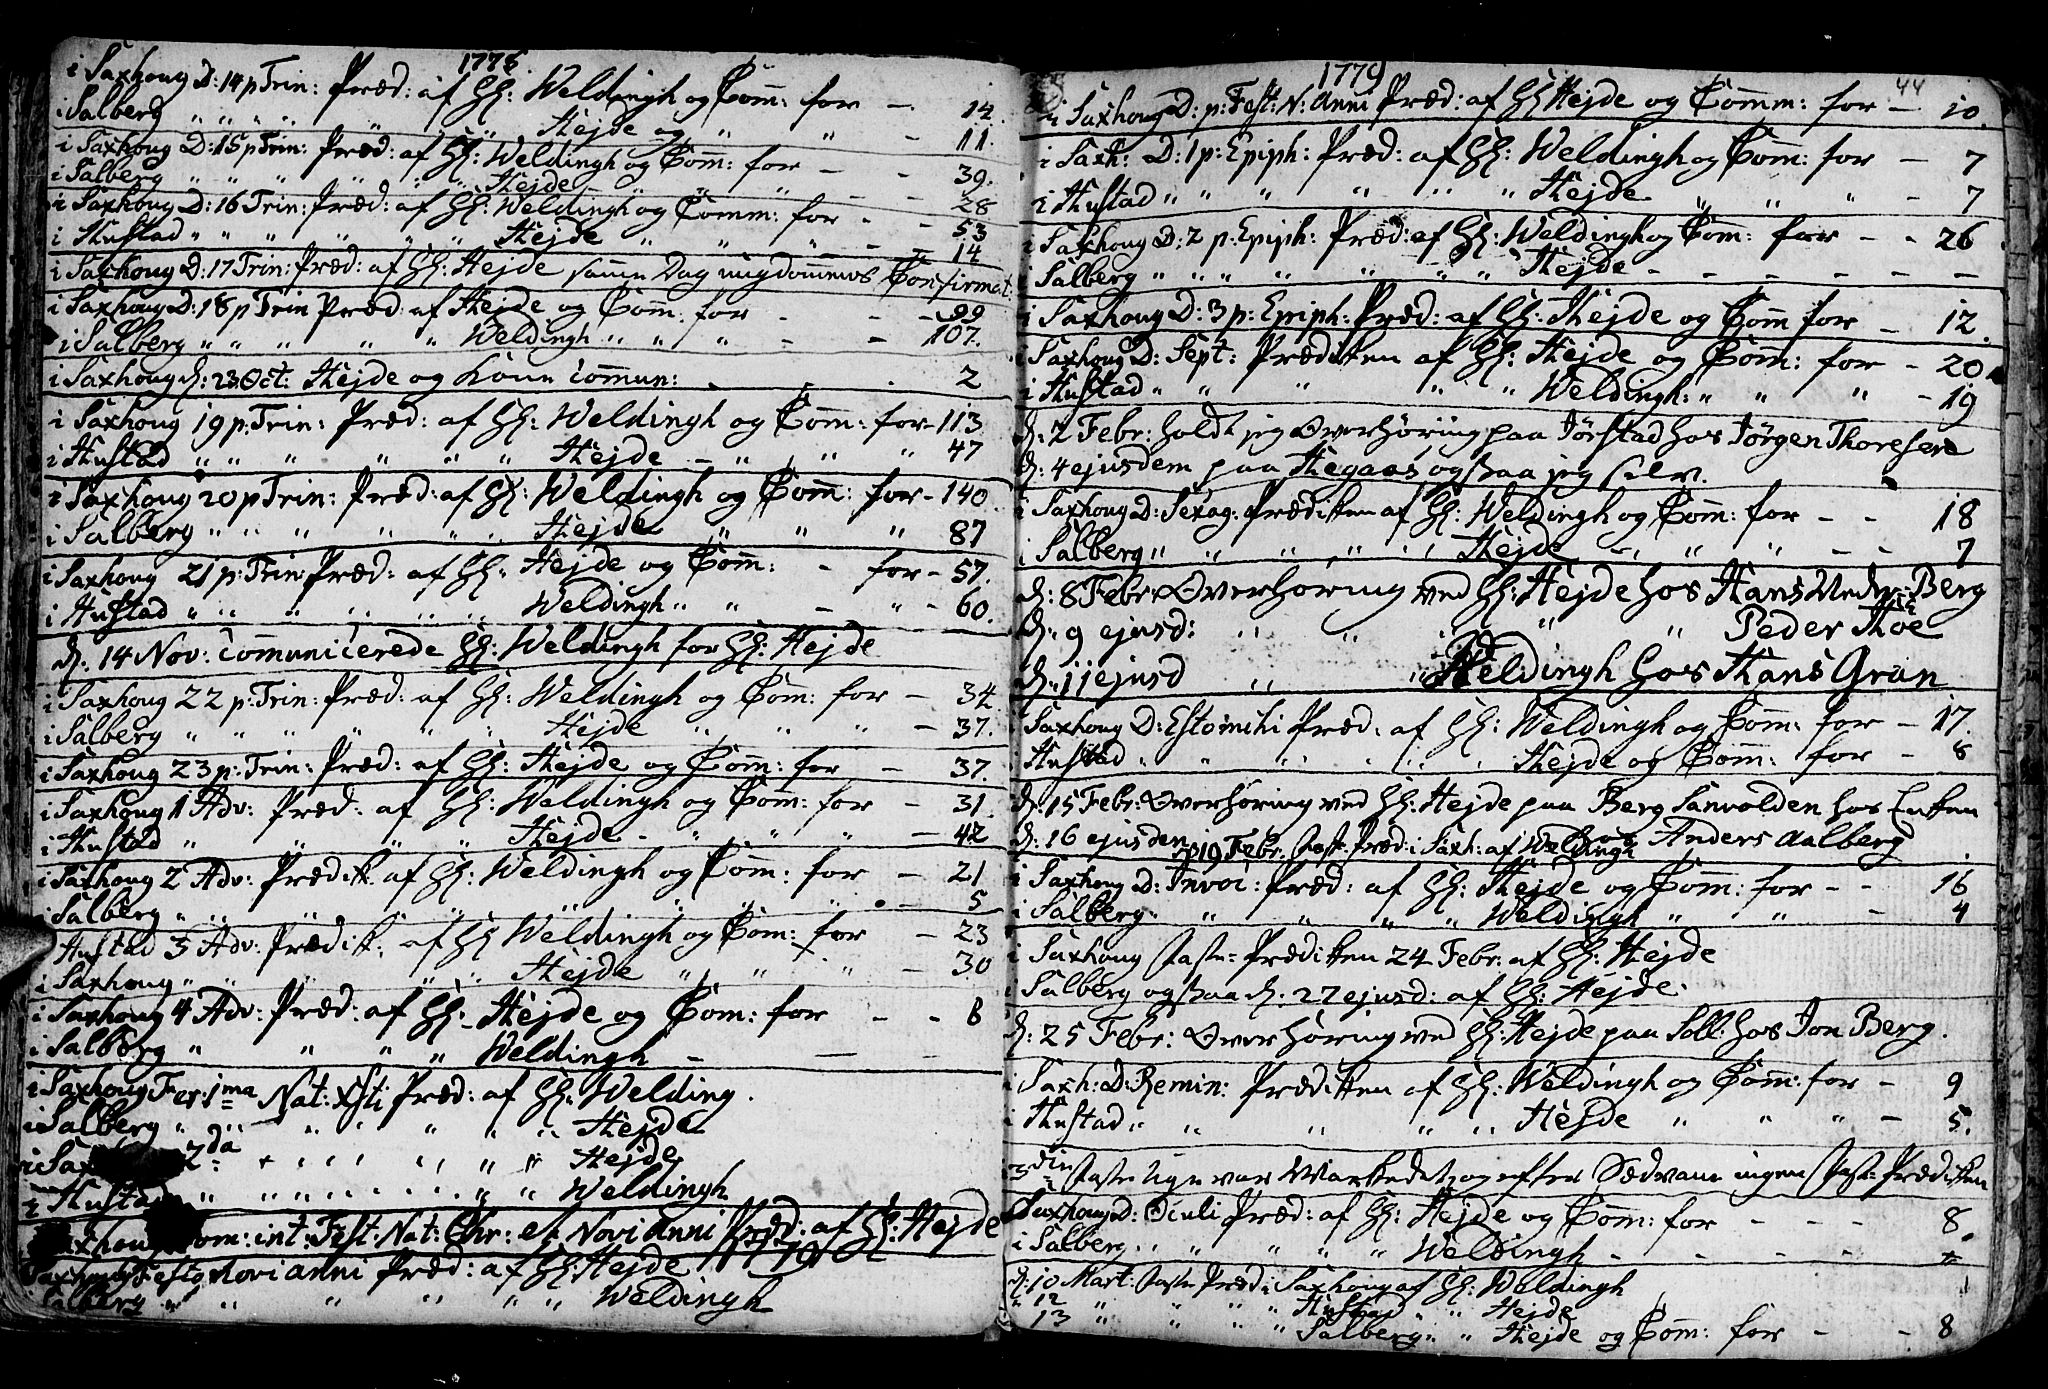 1778.
i Saxhoug D: 14 p Trin: Præd: af Hr: Weldingh og Com̄: for — 14
i Salberg " " " " Hejde og " " — 11.
i Saxhoug D: 15 p Trin: Præd: af Hr: Weldingh og Com̄: for — - 39.
i Salberg " " " " " " Hejde " " " — - 28
i Saxhoug D: 16 Trin: Præd: af Hr: Weldingh og Comm: for - - 53
i Hustad " " " " " " Hejde " " " - - 14
i Saxhoug D: 17 Trin: Præd: af Hr: Hejde samme Dag ungdommens Confirmat:
i Saxhoug D: 18 p Trin Præd: af Hejde og Com̄: for - - - 99
i Salberg " " " " " Weldingh " " " - - 107.
i Saxhoug d: 23 Oct: Hejde og Kone commun: - . 2
i Saxhoug 19 p: Trin: Præd: af Hr: Weldingh og Com̄: for - 113
i Hustad " " " " " " Hejde - " " " 47
i Saxhoug 20 p Trin: Præd: af Hr: Weldingh og Com̄: for - 140
i Salberg " " " " " " Hejde " " " 87
i Saxhoug 21 p: Trin: Præd: af Hr: Hejde og Com̄: - for - 57.
i Hustad " " " " " " Weldingh " " - " - 60.
d: 14 Nov: Com̄unicerede Hr: Weldingh for Hr: Hejde
i Saxhoug 22 p: Trin: Præd: af Hr: Weldingh og Com: for — 34
i Salberg " " " " " " Hejde " " " — 37.
i Saxhoug 23 p: Trin: Præd: af Hr: Hejde og Com̄: for — 37.
i Saxhoug 1 Adv: Præd: af Hr: Weldingh og Com̄: for — 31
i Hustad " " " " Hejde - " " " — 42
i Saxhoug 2 Adv: Prædik: af Hr: Weldingh og Com̄: for — 21
i Salberg " " " " " " " " " - — 5
Hustad 3 Adv: Prædik: af Hr Weldingh og Com: for — 23
i Saxhoug " " " " " Hejde " " " — 30
i Saxhoug 4 Adv: Præd: af Hr: Hejde og Com: for — - 8
i Salberg " " " " Weldingh — — —
i Saxhoug Fer: 1ma Nat: Xsti Præd: af Hr: Welding.
i Salberg " " " " " " " Hejde
i Sax 2da " " " " " " Hejde
i Hustad " " " " " " " " Weldingh
Dom: int: Fest: Nat: Chr: et Novi anni Præd: af Hr: Hejde
1779
Saxhoug Festo novi anni Præd: af Hr: Hejde
i Salberg " " " " " " Weldingh
1779 44
i Saxhoug D: p: Fest: N: Anni Præd: af Hr Hejde og Comm: for — 10.
i Saxh: D: 1 p: Epiph: Præd: af Hr: Weldingh og Com̄: for — 7
i Hustad " " " " " " Hejde " " " — 7
i Saxhoug D: 2 p: Epiph: Præd: af Hr: Weldingh og Com̄: for - - 26
i Salberg " " " " " " " Hejde - - - - - - —
i Saxhoug D: 3 p: Epiph: Præd: af Hr: Hejde og Com̄ for — 12.
i Saxhoug D: Sept: Prædiken af Hr: Hejde og Com̄: for — 20
i Hustad " " " " " Weldingh: " " " — 19
d: 2 Febr: holdt jeg Overhøring paa Jørstad hos Jørgen Thoresen
d: 4 ejusdem paa Hegaas ogsaa jeg selv.
i Saxhoug D: Sexag. Prædiken af Hr: Weldingh og Com̄: for - - 18
i Salberg " " " " " Hejde - " " " - - 7
d: 8 Febr: Overhøring ved Hr: Hejde hos Hans Nedr: Berg
d: 9 ejusd: " " " " " Peder Hoe
d: 11 ejusd " " Weldingh hos Hans Grün
Saxhoug D: Estomihi Præd: af Hr: Weldingh og Com̄: for — 17.
Hustad " " " " " " Hejde og Com̄: for — 8
d: 15 Febr: Overhøring ved Hr: Hejde paa Berg Sanvolden hos Enken
d: 16 ejusdem hos Anders Aalberg
d 19 Febr: Fast: Præd: i Saxh: af Weldingh
i Saxhoug D: Invoc: Præd: af Hr: Hejde og Com̄: for - - 16
i Salberg " " " " " Weldingh " " - 4
i Saxhoug Faste-Prædiken 24 Febr: af Hr: Hejde
i Salberg ogsaa d. 27 ejusd: af Hr: Hejde.
d: 25 Febr: Overhøring ved Hr: Hejde paa Soll: hos Jon Berg.
i Saxh: D: Remin: Prædiken af Hr: Weldingh og Com̄: for — 9
i Hustad " " " " " Hejde " " " — 5.
3die Faste Uge var Markedet, og efter Sædvane ingen Faste-Prædiken
Saxhoug D: Oculi Præd: af Hr: Hejde og Com̄: for - - - 8
i Salberg " " " " " Weldingh - - - -
d: 10 Mart: Faste Præd: i Saxhoug af Hr: Weldingh
" 12 " " " " Hustad " " Hejde
13 " " " " Salberg " " Hejde og Com̄: for - - 8